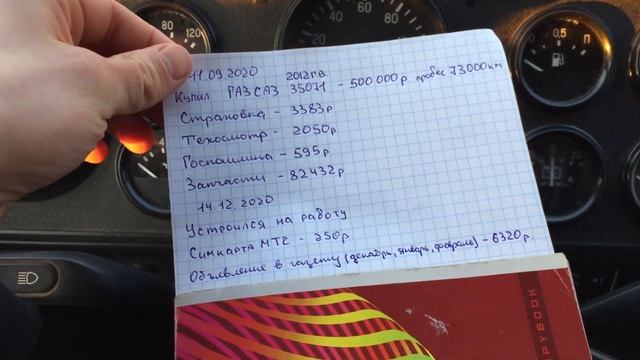 11.09.2020 2012г.в.
Купил ГАЗ САЗ 35071 - 500 000р пробег 73000км
Страховка - 3383р
Техосмотр - 2050р
Госпошлина - 595р
Запчасти - 82432р
14.12.2020
Устроился на работу
Симкарта МТС - 250р
Объявление в газету (декабрь, январь, февраль) - 6320р.
PYBOOK
80
120
20
40
60
80
0
0,5
П